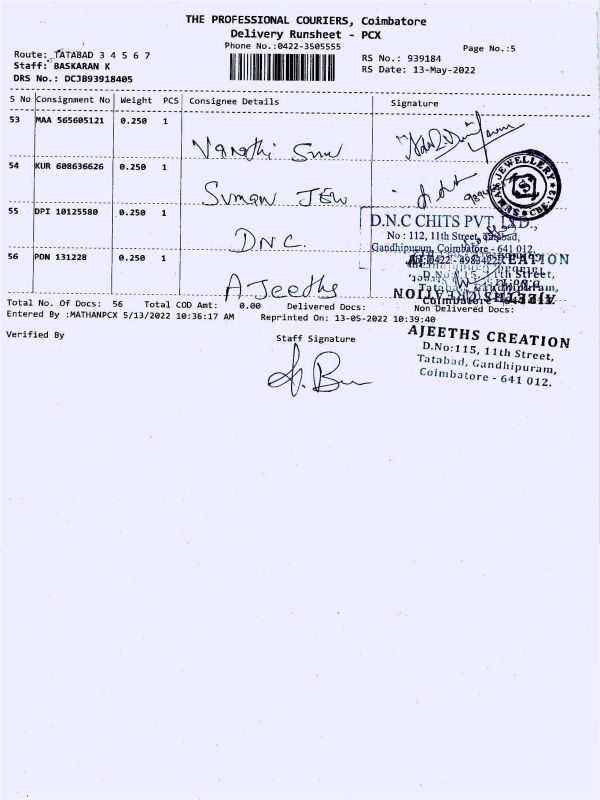 THE PROFESSIONAL COURIERS, Coimbatore
Delivery Runsheet - PCX
Phone No.:0422-3505555
Page No.:5
Route: TATABAD 3 4 5 6 7
Staff: BASKARAN K
DRS No.: DCJB93918405
RS No.: 939184
RS Date: 13-May-2022
S No Consignment No Weight PCS Consignee Details Signature
53 MAA 565605121 0.250 1
54 KUR 608636626 0.250 1
Suman JEW
SUMAN JEWELLERY
55 DPI 10125580 0.250 1
DNC.
D.N.C CHITS PVT LTD.,
No : 112, 11th Street, Tatabad,
Gandhipuram, Coimbatore - 641 012.
56 PDN 131228 0.250 1
AJeeths
Total No. Of Docs: 56 Total COD Amt: 0.00 Delivered Docs: Non Delivered Docs:
Entered By :MATHANPCX 5/13/2022 10:36:17 AM Reprinted On: 13-05-2022 10:39:40
Verified By
Staff Signature
AJEETHS CREATION
D.No:115, 11th Street,
Tatabad, Gandhipuram,
Coimbatore - 641 012.